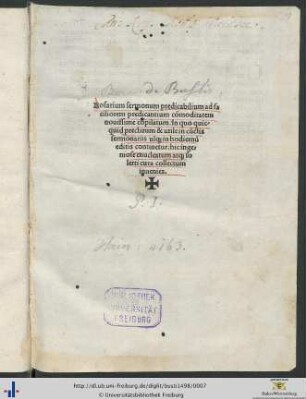 de Busti
Rosarium sermonum predicabilium ad fa
ciliorem predicantium cōmoditatem
nouissime cōpilatum. In quo quic
quid preclarum & utile in cūctis
sermonariis usq; in hodiernū
editis continetur: hic inge
niose enucleatum atq; so
lerti cura collectum
inuenies.
P. I.
Hain: 4163.
BIBLIOTHEK
UNIVERSITÄT
FREIBURG
http://dl.ub.uni-freiburg.de/diglit/busti1498/0007
© Universitätsbibliothek Freiburg
Baden-Württemberg